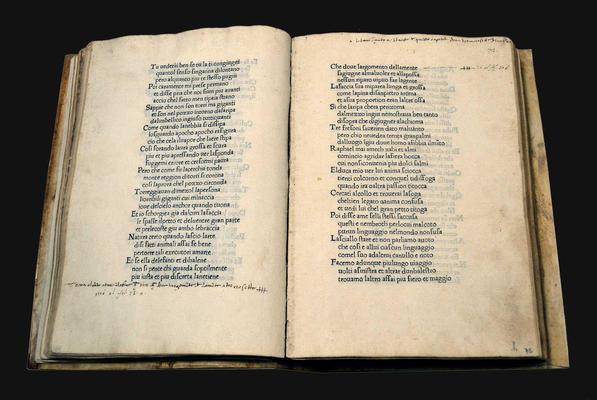 Tu uederai ben se tu la ti congiungi
quantol senso singanna dilontano
pero alquanto piu te stesso pugni
Poi caramente mi prese permano
et disse pria che noi siam piu auanti
accio chel facto men tipaia strano
Sappie che non son torri ma giganti
et son nel pozzo intorno dalaripa
dalumbellico ingiuso tutti quanti
Come quando lanebbia si dissipa
losguardo apoco apoco raffigura
cio che cela iluapor che laere stipa
Cosi forando laura grossa et scura
piu et piu apressando uer lasponda
fuggemi errore et crescemi paura
Pero che come sir lacerchia tonda
monte reggion di torri si corona
cosi laproda chel pozzo circonda
Torreggiauan dimezzol lapersona
horribili giganti cui minaccia
ioue delcielo anchor quando tuona
Et io scorgeua gia dalcun lafaccia
le spalle ilpetto et deluentre gran parte
et perlecoste giu ambo lebraccia
Natura certo quando lascio larte
disi facti animali assai fe bene
pertorre tali executori amarte
Et se ella delefanti et dibalene
non si pente chi guarda sottilmente
piu iusta et piu discreta lanetiene
Che doue largomento dellamente
sagiugne almaluolere et allapossa
nessun riparo uipuo far lagente
Lafaccia sua miparea lunga et grossa
come lapina disanpietro aroma
et assa proportion eran laltre ossa
Si che laripa chera perizoma
dalmezzo ingiu nemostraua ben tanto
disopra che digiugnere alachioma
Tre freson sauterien dato maluanto
pero chio neuedea trenta granpalmi
dalluogo igiu doue homo affibbia ilmanto
Raphel mai amech zabi et almi
comincio agridar lafiera bocca
cui nonsiconuenia piu dolci salmi
Elduca mio uer lui anima sciocca
tienti colcorno et conquel tidisfoga
quando ira oaltra passion titocca
Cercati alcollo et trouerai lasoga
cheltien legato oanima confusa
et uedi lui chel gran petto tidoga
Poi disse ame sella stessi saccusa
questi e nembrotti perlocui malcoto
pur un linguaggio nelmondo nonsusa
Lasciallo stare et non parliamo auoto
che cosi e allui ciascun linguaggio
comel suo adaltrui canullo e noto
Facemo adunque piulungo uiaggio
uolti asinistra et altrar dunbalestro
trouamo laltro assai piu fiero et maggio